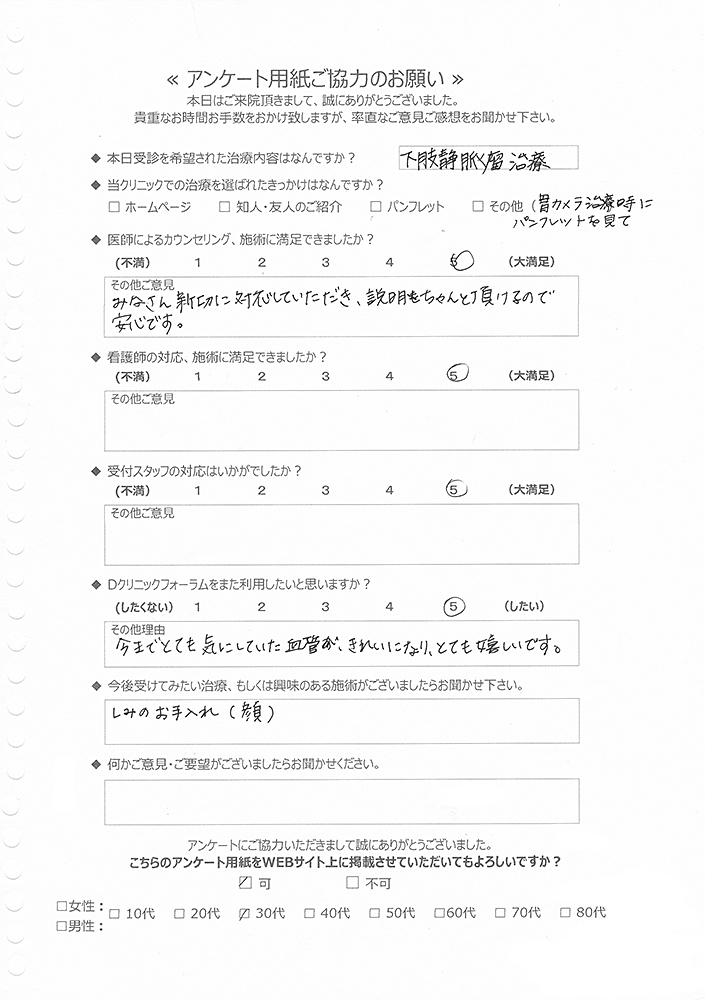 ≪ アンケート用紙ご協力のお願い ≫
本日はご来院頂きまして、誠にありがとうございました。
貴重なお時間お手数をおかけ致しますが、率直なご意見ご感想をお聞かせ下さい。
◆ 本日受診を希望された治療内容はなんですか？ 下肢静脈瘤治療
◆ 当クリニックでの治療を選ばれたきっかけはなんですか？
□ ホームページ □ 知人・友人のご紹介 □ パンフレット □ その他 (胃カメラ治療時に
パンフレットを見て
◆ 医師によるカウンセリング、施術に満足できましたか？
(不満) 1 2 3 4 5 (大満足)
その他ご意見
みなさん親切に対応していただき、説明もちゃんと頂けるので
安心です。
◆ 看護師の対応、施術に満足できましたか？
(不満) 1 2 3 4 5 (大満足)
その他ご意見
◆ 受付スタッフの対応はいかがでしたか？
(不満) 1 2 3 4 5 (大満足)
その他ご意見
◆ Dクリニックフォーラムをまた利用したいと思いますか？
(したくない) 1 2 3 4 5 (したい)
その他理由
今までとても気にしていた血管が、きれいになり、とても嬉しいです。
◆ 今後受けてみたい治療、もしくは興味のある施術がございましたらお聞かせ下さい。
しみのお手入れ (顔)
◆ 何かご意見・ご要望がございましたらお聞かせください。
アンケートにご協力いただきまして誠にありがとうございました。
こちらのアンケート用紙をWEBサイト上に掲載させていただいてもよろしいですか？
☑ 可 □ 不可
□女性：
□ 10代 □ 20代 ☑ 30代 □ 40代 □ 50代 □60代 □ 70代 □ 80代
□男性：